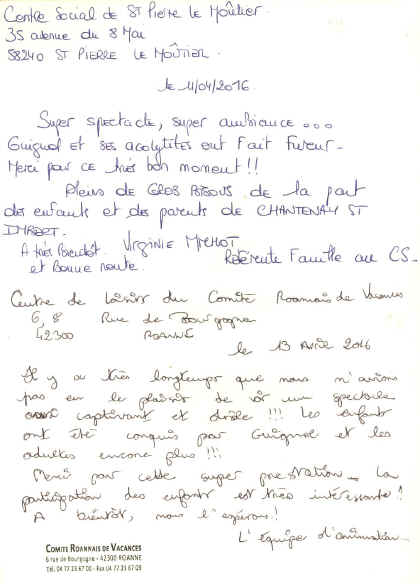 Centre Social de St Pierre Le Moûtier.
35 avenue du 8 Mai
58240 ST PIERRE LE MOÛTIER.
le 11/04/2016.
Super spectacle, super ambiance ...
Guignol et ses acolytites ont fait fureur -
Merci pour ce très bon moment !!
Pleins de GROS BISOUS de la part
des enfants et des parents de CHANTENAY ST
IMBERT.
A très Bientôt. Virginie MICHOT
et Bonne route. Référente Famille au CS -
Centre de Loisir du Comité Roannais de Vacances
6, 8 Rue de Bourgogne
42300 ROANNE
le 13 Avril 2016
Il y a très longtemps que nous n'avions
pas eu le plaisir de voir un spectacle
captivant et drôle !!! Les enfant
ont été conquis par Guignol et les
adultes encore plus !!!
Merci pour cette super prestation - La
participation des enfants est très intéressante !
A bientôt, nous l'espérons !
L'équipe d'animation
COMITE ROANNAIS DE VACANCES
6 rue de Bourgogne - 42300 ROANNE
Tél. 04 77 23 67 00 - Fax 04 77 23 67 08